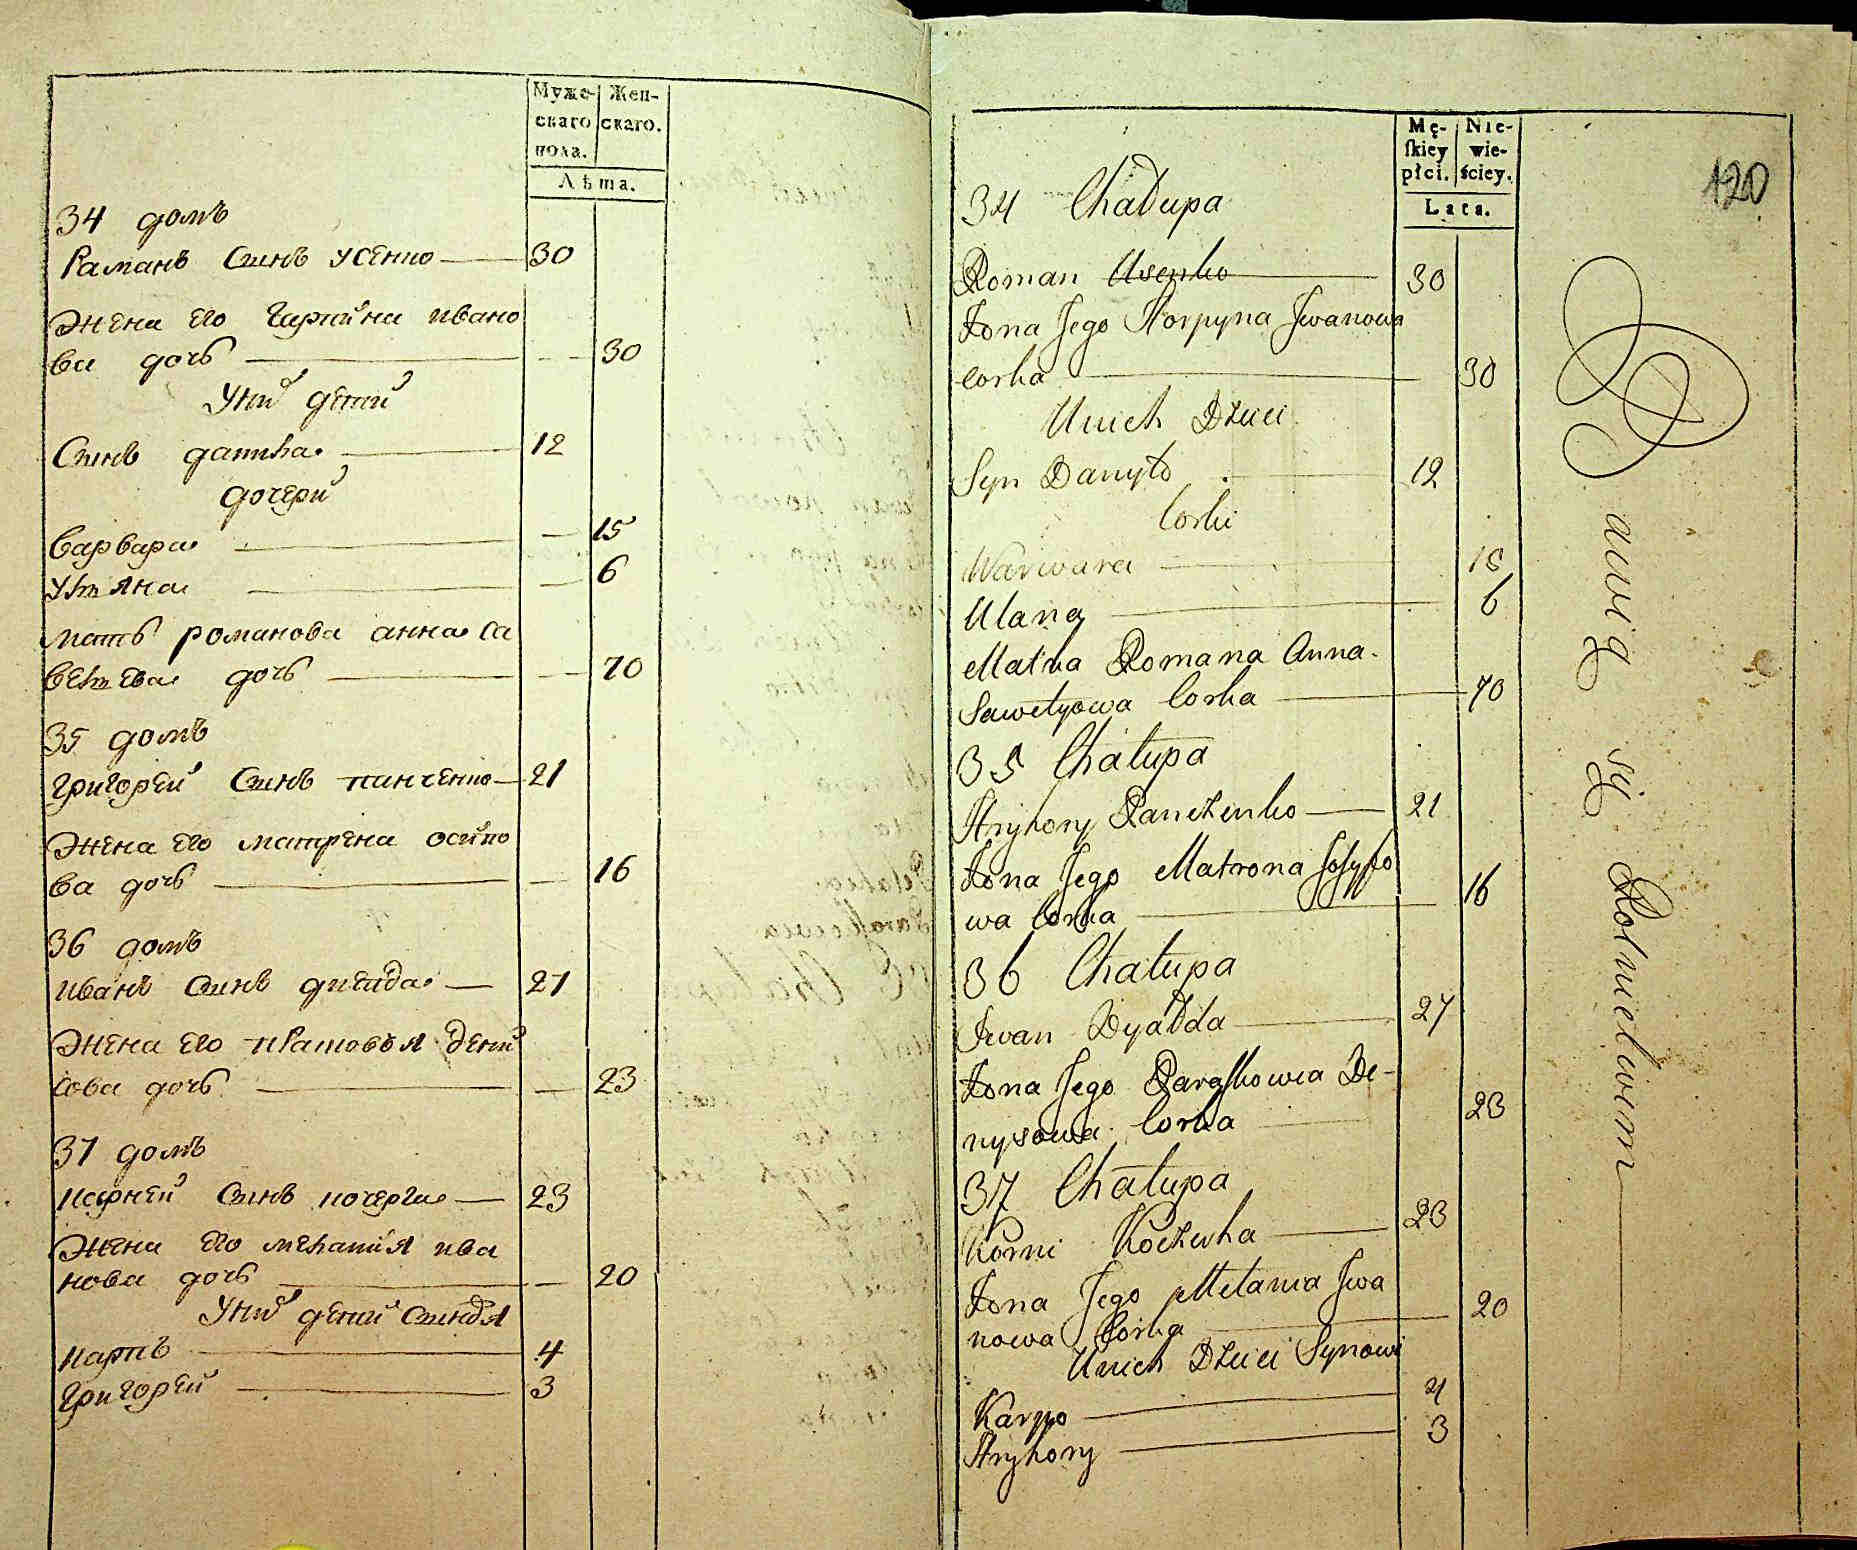 Муже-
скаго
пола.
Жен-
скаго.
Лѣта.
34 домъ
Раманъ Синъ усенко 30
Жена Его Гарпина ивано
ва дочь 30
Уних детий
Синъ данила 12
дочерий
варвара 15
Уляна 6
мать романова анна са
велева дочь 70
35 домъ
григорей Синъ панченко 21
Жена Его матрена осипо
ва дочь 16
36 домъ
иванъ Синъ 27
Жена Его Дени
сова дочь 23
37 домъ
карней Синъ кочерга 23
Жена Его мелания ива
нова дочь 20
Уних детий
карпъ 4
григорей 3
Mę-
ſkiey
płci.
Nie-
wie-
ściey.
Lata.
120
34 Chałupa
Roman Usenko 30
Żona Jego Horpyna Jwanowa
Corka 30
Unich Dzieci
Syn Danyło 12
Corki
Warwara 15
Ulana 6
Matka Romana Anna
Sawelyowa Corka 70
35 Chałupa
Hryhory Panczenko 21
Żona Jego Matrona Josypo
wa Corka 16
36 Chałupa
Jwan Dyadda 27
Żona Jego Paraſkowia De-
nysowa Corka 23
37 Chałupa
Korni Koczerha 23
Żona Jego Melania Jwa
nowa Corka 20
Unich Dzieci Synowi
Karpo 4
Hryhory 3
Bawią się Rolnictwem